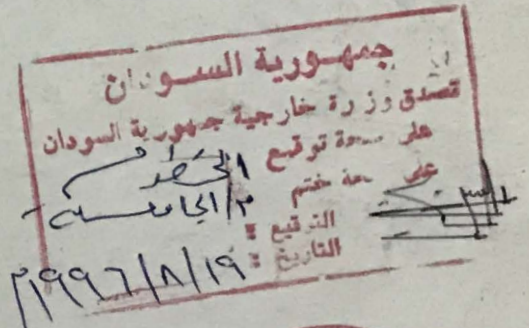 جمهورية السودان
تصدق وزارة خارجية جمهورية السودان
على صحة توقيع
على صحة ختم
التوقيع :
التاريخ : ١٩٩٦/٨/١٩م